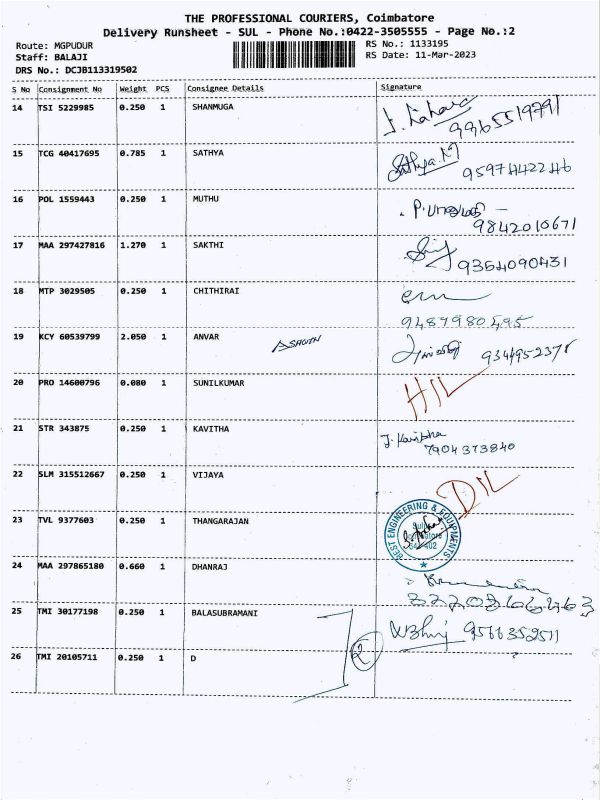 THE PROFESSIONAL COURIERS, Coimbatore
Delivery Runsheet - SUL - Phone No.:0422-3505555 - Page No.:2
Route: MGPUDUR
RS No.: 1133195
Staff: BALAJI
RS Date: 11-Mar-2023
DRS No.: DCJB113319502
S No Consignment No Weight PCS Consignee Details Signature
14 TSI 5229985 0.250 1 SHANMUGA
9965519791
15 TCG 40417695 0.785 1 SATHYA Sathya.M
9597442246
16 POL 1559443 0.250 1 MUTHU
9842010671
17 MAA 297427816 1.270 1 SAKTHI
9364090431
18 MTP 3029505 0.250 1 CHITHIRAI
9487980595
19 KCY 60539799 2.050 1 ANVAR
9344952378
20 PRO 14600796 0.080 1 SUNILKUMAR
21 STR 343875 0.250 1 KAVITHA
7904373840
22 SLM 315512667 0.250 1 VIJAYA
D/L
23 TVL 9377603 0.250 1 THANGARAJAN
BEST ENGINEERING & EQUIPMENTS
24 MAA 297865180 0.660 1 DHANRAJ
25 TMI 30177198 0.250 1 BALASUBRAMANI
9566352511
26 TMI 20105711 0.250 1 D
2